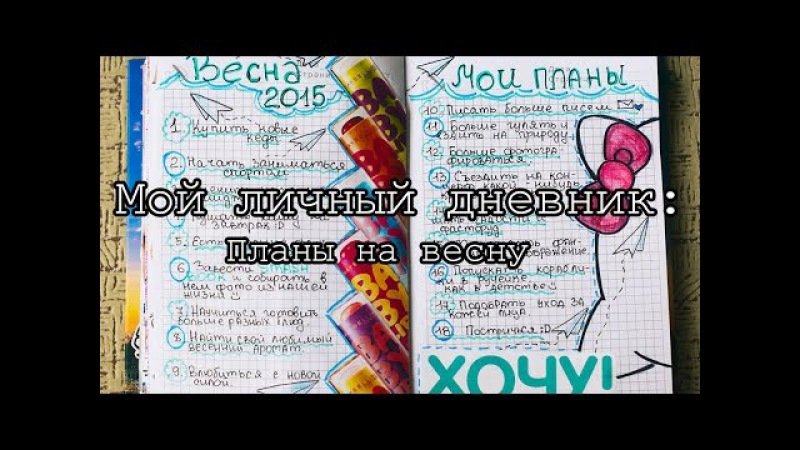 Весна
2015
1. Купить новые
кеды.
2. Начать заниматься
спортом
завтрак :D
5. Есть
6. Завести SMASH
BOOK и собирать в
нем фото из нашей
жизни
7. Научиться готовить
больше разных блюд.
8. Найти свой любимый
весенний аромат.
9. Влюбиться с новой
силой.
Мои планы
10. Писать больше писем
11. Больше гулять и
ездить на природу
12. Больше фотогра-
фироваться.
13. Съездить на кон-
церт какой-нибудь
фастфуд.
16. Попускать корабли-
ки в ручейке,
как в детстве
17. Подобрать уход за
кожей лица.
18. Постричься :D
ХОЧУ!
Мой личный дневник:
Планы на весну